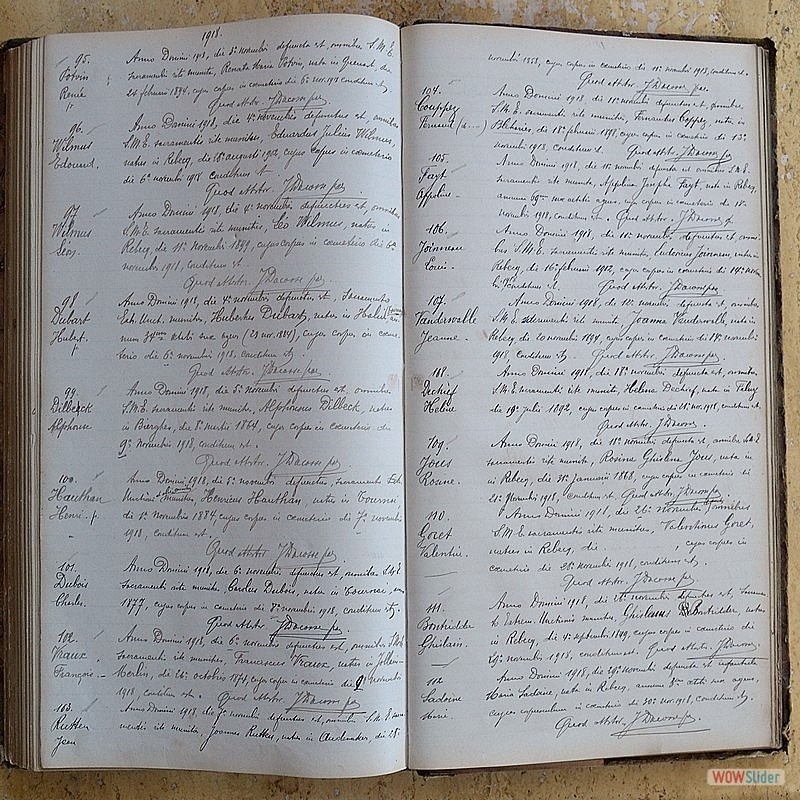 1918.
95. Anno Domini 1918, die 3ᵃ novembri defuncta est, omnibus S.M.E.
Potvin sacramentis rite munita, Renata Maria Potvin, nata in
Renée 24 februarii 1894, cujus corpus in cœmeterio die 6ᵃ nov. 1918 conditum est.
Quod attestor. J Dacosse par.
96. Anno Domini 1918, die 4ᵃ novembri defunctus est, omnibus
Wilmus S.M.E. sacramentis rite munitus, Eduardus Julius Wilmus,
Edouard. natus in Rebecq, die 16ᵃ augusti 1912, cujus corpus in cœmeterio
die 6ᵃ novembri 1918 conditum est.
Quod attestor. J Dacosse par.
97 Anno Domini 1918, die 4ᵃ novembri defunctus est, omnibus
Wilmus S.M.E. sacramentis rite munitus, Léo Wilmus, natus in
Léon. Rebecq, die 11ᵃ novembri 1899, cujus corpus in cœmeterio die 6ᵃ
novembri 1918, conditum est.
Quod attestor. J Dacosse par.
98 Anno Domini 1918, die novembri defunctus est, sacramento
Dubart Ext. Unct. munitus, Hubertus Dubart, natus in
Hubert. num 34ᵘᵐ ætatis suæ agens (23 nov. 1884), cujus corpus in cœme-
terio die 6ᵃ novembri 1918, conditum est.
Quod attestor. J Dacosse par.
99 Anno Domini 1918, die 5ᵃ novembri defunctus est, omnibus
Dilbeck S.M.E. sacramentis rite munitus, Alphonsus Dilbeck, natus
Alphonse in Bierghes, die 8ᵃ martii 1864, cujus corpus in cœmeterio die
9ᵃ novembri 1918, conditum est.
Quod attestor. J Dacosse par.
100 Anno Domini 1918, die 5ᵃ novembri defunctus est, sacramento Ext.
Hauthan Unctionis munitus, Henricus Hauthan, natus in Tournai,
Henri. die 1ᵃ novembri 1884, cujus corpus in cœmeterio die 7ᵃ novembri
1918, conditum est.
Quod attestor. J Dacosse par.
101 Anno Domini 1918, die 6ᵃ novembri defunctus est, omnibus S.M.E.
Dubois Sacramentis rite munitus, Carolus Dubois, natus in Tournai, anno
Charles. 1877, cujus corpus in cœmeterio die 8ᵃ novembri 1918, conditum est.
Quod attestor. J Dacosse par.
102. Anno Domini 1918, die 6ᵃ novembri defunctus est, omnibus S.M.E.
Vraux. sacramentis rite munitus, Franciscus Vraux, natus in Jollain-
François Merlin, die 26ᵃ octobris 1874, cujus corpus in cœmeterio die 9ᵃ novembri
1918, conditum est. Quod attestor. J Dacosse par.
103. Anno Domini 1918, die 7ᵃ novembri defunctus est, omnibus S.M.E. sacra-
Rutten mentis rite munitus, Joannes Rutten, natus in Audenaken, die 28ᵃ
Jean
novembri 1858, cujus corpus in cœmeterio die 11ᵃ novembri 1918, conditum est.
Quod attestor. J Dacosse par.
104. Anno Domini 1918 die 11ᵃ novembri, defunctus est, omnibus
Couppez S.M.E. sacramentis rite munitus, Fernandus Coppez, natus in
Fernand Blicharies, die 18ᵃ februarii 1898, cujus corpus in cœmeterio die 13ᵃ
novembri 1918, conditum est. Quod attestor. J Dacosse par.
105. Anno Domini 1918, die 15ᵃ novembri, defuncta est omnibus S.M.E.
Fayt sacramentis rite munita, Appolina Josepha Fayt, nata in Rebecq
Appoline. annum 69ᵘᵐ suæ ætatis agens, cujus corpus in cœmeterio die 18ᵃ
novembri 1918, conditum est. Quod attestor. J Dacosse par.
106. Anno Domini 1918, die 11ᵃ novembri, defunctus est, omni-
Joinneau bus S.M.E. sacramentis rite munitus, Ludovicus Joinneau, natus in
Louis. Rebecq, die 16ᵃ februarii 1912, cujus corpus in cœmeterio die 14ᵃ novem-
bri conditum est. Quod attestor. J Dacosse par.
107. Anno Domini 1918, die 12ᵃ novembri, defuncta est, omnibus
Vanderwalle S.M.E. sacramentis rite munita, Joanna Vanderwalle, nata in
Jeanne. Rebecq, die 20 novembri 1894, cujus corpus in cœmeterio die 18ᵃ novembri
1918, conditum est. Quod attestor. J Dacosse par.
108. Anno Domini 1918, die 18ᵃ novembri defuncta est, omnibus
Dechief S.M.E. sacramentis rite munita, Helena Dechief, nata in Tubize
Hélène die 19ᵃ julii 1892, cujus corpus in cœmeterio die 21ᵃ nov. 1918, conditum est.
Quod attestor. J Dacosse.
109. Anno Domini 1918, die 18ᵃ novembri, defuncta est, omnibus S.M.E.
Jous sacramentis rite munita, Rosine Ghislena Jous, nata in
Rosine. in Rebecq, die 31ᵃ januarii 1868, cujus corpus in cœmeterio die
21ᵃ novembri 1918, conditum est. Quod attestor. J Dacosse par.
110 Anno Domini 1918, die 22ᵃ novembri, omnibus
Goret S.M.E. sacramentis rite munitus, Valentinus Goret,
Valentin. natus in Rebecq, die . . . , cujus corpus in
cœmeterio die 25ᵃ novembri 1918, conditum est.
Quod attestor. J Dacosse par.
111 Anno Domini 1918, die novembri defunctus est, Sacramen-
Bontridder to Extrem. Unctionis munitus, Ghislanus Bontridder, natus
Ghislain. in Rebecq, die 4ᵃ septembri 1849, cujus corpus in cœmeterio die
29ᵃ novembri 1918, conditum est. Quod attestor. J Dacosse.
112 Anno Domini 1918, die 29ᵃ novembri defuncta est
Ladoire Maria Ladoire, nata in Rebecq, annum 8ᵘᵐ ætatis suæ agens,
Marie. cujus in cœmeterio die 30ᵃ nov. 1918, conditum est.
Quod attestor. J Dacosse par.
WOWSlider